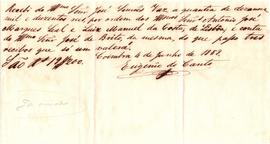 Recebi do Illmo Senr. José Simões Vaz a quantia de dezanove
mil e duzentos reis por ordem dos Illmos Senrs Antonio José
Marques Leal e Luiz Manuel da Costa, de Lisboa, e conta
do Illmo Senr. José de Brito, da mesma, do que passo tres
recibos que só um valerá.
São Rs 19$200. Coimbra 4 de junho de 1882.
Eugenio de Castro